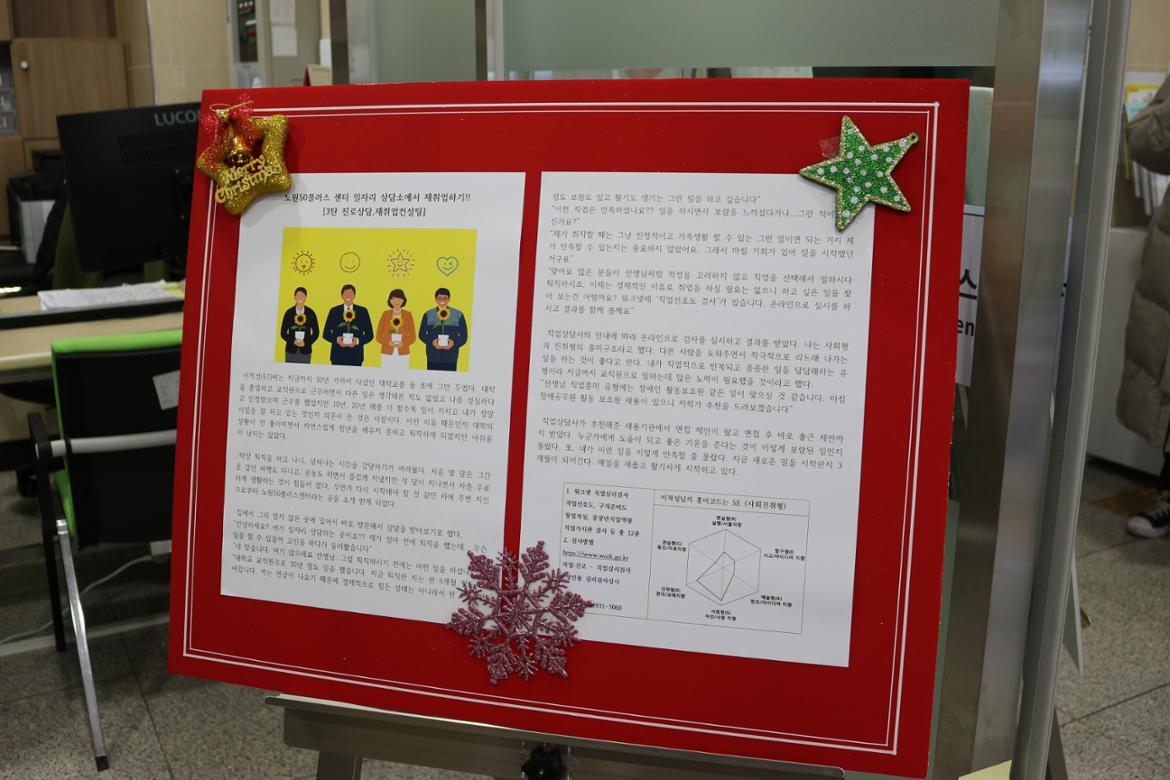 LUCO
Merry
Christmas
노원50플러스 센터 일자리 상담소에서 재취업하기!!
[3탄 진로상담,재취업컨설팅]
이적성(57)씨는 지금까지 30년 가까이 다녔던 대학교를 올 초에 그만 두었다. 대학
을 졸업하고 교직원으로 근무하면서 다른 일은 생각해본 적도 없었고 나름 성실하다
고 인정받으며 근무를 했었지만 10년, 20년 해를 더 할수록 일이 지치고 내가 정말
이일을 잘 하고 있는 것인지 의문이 든 것은 사실이다. 이런 이유 때문인지 대학의
상황이 안 좋아지면서 자연스럽게 정년을 채우지 못하고 퇴직하게 되었지만 아쉬움
이 남지는 않았다.
막상 퇴직을 하고 나니, 넘쳐나는 시간을 감당하기가 어려웠다. 처음 몇 달은 그간
못 갔던 여행도 다니고, 운동도 하면서 즐겁게 지냈지만 석 달이 지나면서 차츰 무료
하게 생활하는 것이 힘들어 졌다. 무언가 다시 시작해야 할 것 같던 차에 주변 지인
으로부터 노원50플러스센터라는 곳을 소개 받게 되었다.
집에서 그리 멀지 않은 곳에 있어서 바로 방문해서 상담을 받아보기로 했다.
"안녕하세요? 여기 일자리 상담하는 곳이죠?? 제가 얼마 전에 퇴직을 했는데 무슨
일을 할 수 있을까 고민을 하다가 들러봤습니다"
"네 맞습니다. 여기 앉으세요 선생님. 그럼 퇴직하시기 전에는 어떤 일을 하셨
"대학교 교직원으로 30년 정도 일을 했습니다. 지금 퇴직한 지는 한 5개월
어갑니다. 저는 연금이 나오기 때문에 경제적으로 힘든 상태는 아니라서 한
정도 보람도 있고 활기도 생기는 그런 일을 하고 싶습니다"
"이전 직업은 만족하셨나요?? 일을 하시면서 보람을 느끼셨다거나...그런 적이
신가요?"
"제가 취직할 때는 그냥 안정적이고 가족생활 할 수 있는 그런 일이면 되는 거지 제
가 만족할 수 있는지는 중요하지 않았어요. 그래서 마침 기회가 있어 일을 시작했던
거구요"
"맞아요 많은 분들이 선생님처럼 적성을 고려하지 않고 직업을 선택해서 일하시다
퇴직하시죠. 이제는 경제적인 이유로 취업을 하실 필요는 없으니 하고 싶은 일을 찾
아 보는건 어떨까요? 워크넷에 '직업선호도 검사'가 있습니다. 온라인으로 실시를 하
시고 결과를 함께 볼께요"
직업상담사의 안내에 따라 온라인으로 검사를 실시하고 결과를 받았다. 나는 사회형
과 진취형의 흥미구조라고 했다. 다른 사람을 도와주면서 적극적으로 리드해 나가는
일을 하는 것이 좋다고 한다. 내가 직업적으로 반복되고 꼼꼼한 일을 담당해야하는 유
형이라 지금까지 교직원으로 일하는데 많은 노력이 필요했을 것이라고 했다.
"선생님 직업흥미 유형에는 장애인 활동보조원 같은 일이 맞으실 것 같습니다. 마침
장애공무원 활동 보조원 채용이 있으니 저희가 추천을 드려보겠습니다"
직업상담사가 추천해준 채용기관에서 면접 제안이 왔고 면접 후 바로 출근 제안까
지 받았다. 누군가에게 도움이 되고 좋은 기운을 준다는 것이 이렇게 보람된 일인지
몰랐다. 또, 내가 이런 일을 이렇게 만족할 줄 몰랐다. 지금 새로운 일을 시작한지 3
개월이 되어간다. 매일을 새롭고 활기차게 시작하고 있다.
1. 워크넷 직업심리검사
직업선호도, 구직준비도
창업적성, 중장년직업역량
직업가치관 검사 등 총 12종
2. 검사방법
https://www.work.go.kr
직업·진로 - 직업심리검사
성인용 심리검사실시
931-5060
이적성님의 흥미코드는 SE (사회진취형)
현실형(R)
실행/사물지향
탐구형(I)
사고/아이디어 지향
예술형(A)
창조/아이디어 지향
사회형(S)
자선/사람 지향
진취형(E)
관리/과제지향
관습형(C)
동조/자료지향
스
en